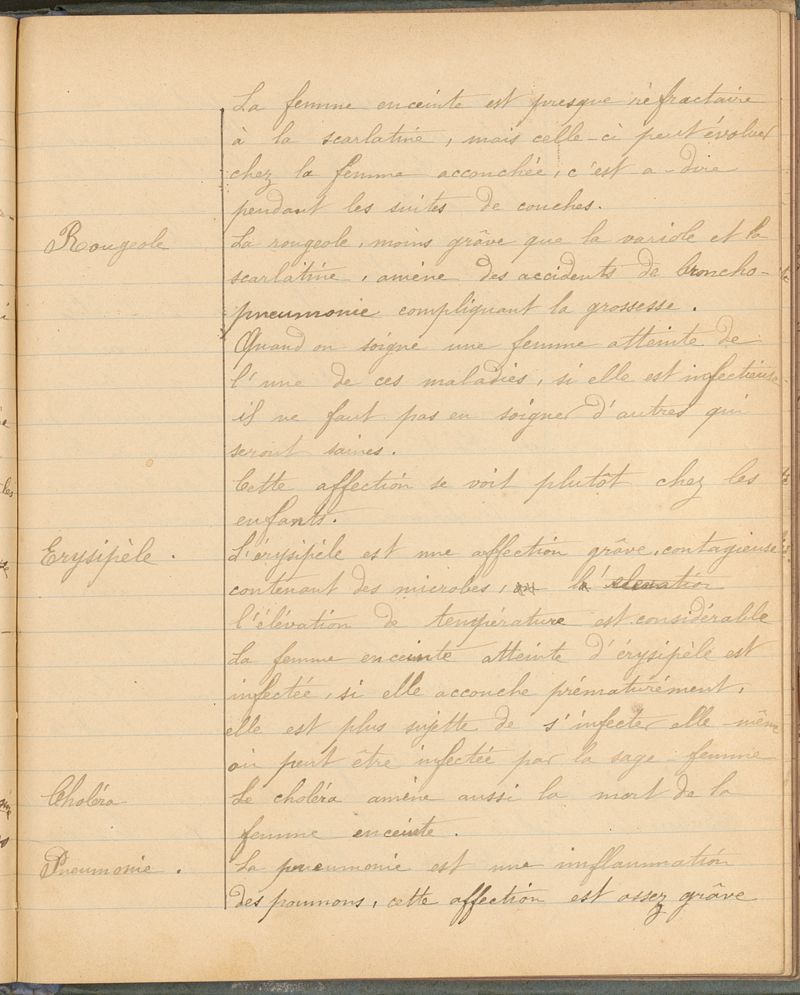 La femme enceinte est presque réfractaire
à la scarlatine, mais celle-ci peut évoluer
chez la femme acconchée, c'est a-dire
pendant les suites de couches.
Rougeole
La rougeole, moins grâve que la variole et la
scarlatine, amène des accidents de broncho-
pneumonie compliquant la grossesse.
Quand on soigne une femme atteinte de
l'une de ces maladies, si elle est infectieuse
il ne faut pas en soigner d'autres qui
seront saines.
Cette affection se voit plutôt chez les
enfants.
Erysipèle.
L'érysipèle est une affection grâve, contagieuse
contenant des microbes, l'élevation
l'élévation de température est considérable
La femme enceinte atteinte d'érysipèle est
infectée, si elle acconche prématurément,
elle est plus sujette de s'infecter elle-même
ou peut être infectée par la sage-femme
Choléra
Le choléra amène aussi la mort de la
femme enceinte.
Pneumonie.
La pneumonie est une inflammation
des poumons, cette affection est assez grâve